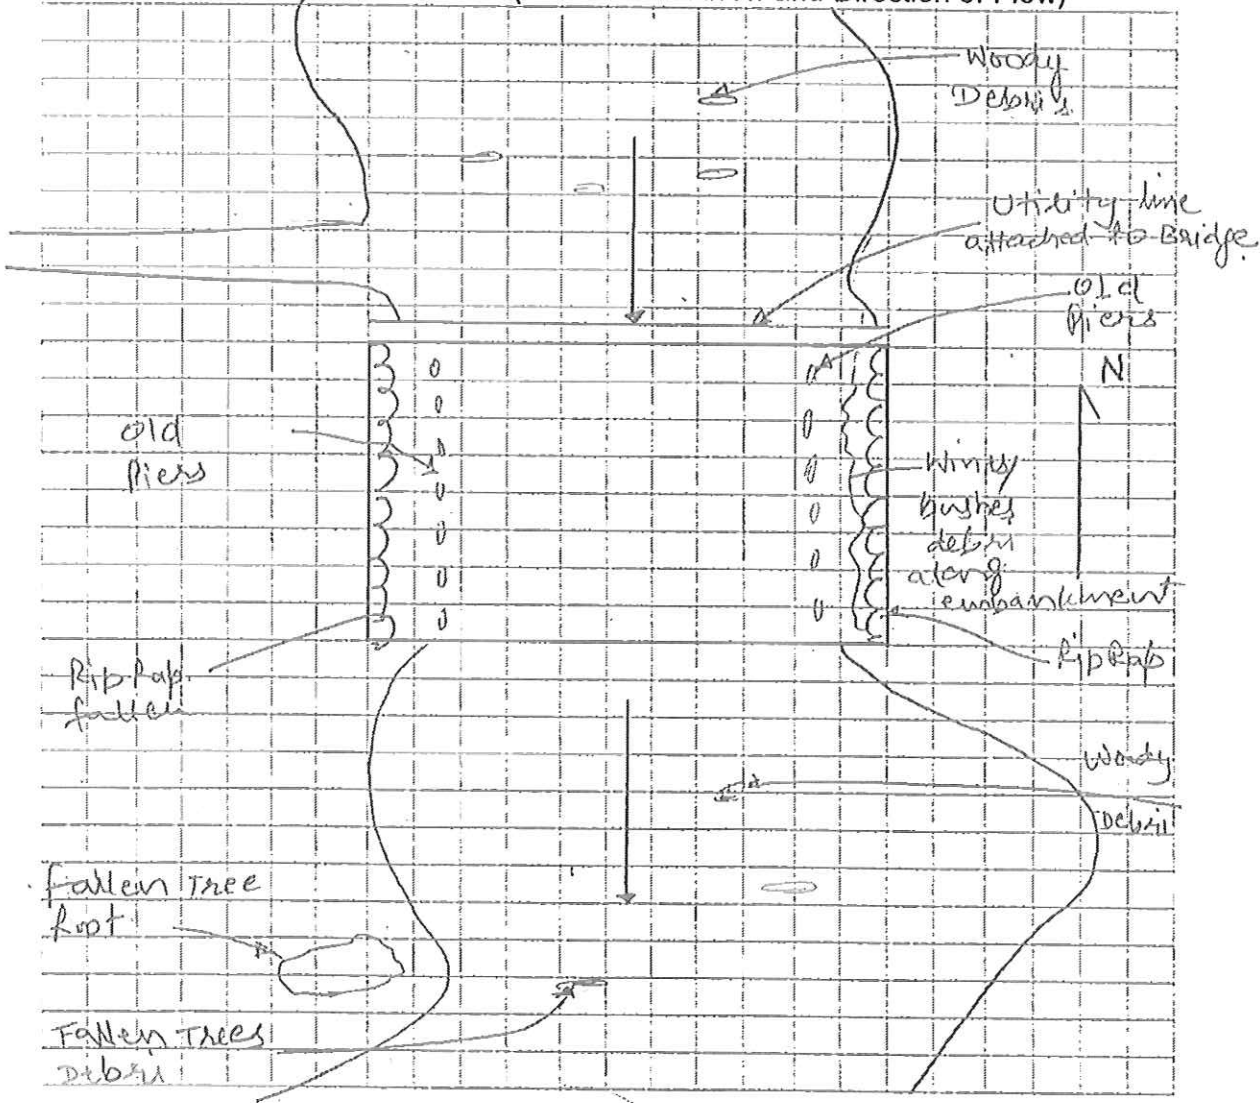 and Direction of Flow)
Woody
Debris
Utility line
attached to Bridge
Old
Piers
N
Old
Piers
bushes
debri
along
embankment
Rip Rap
fallen
Rip Rap
Woody
Debri
Fallen Tree
Root
Fallen Trees
Debri